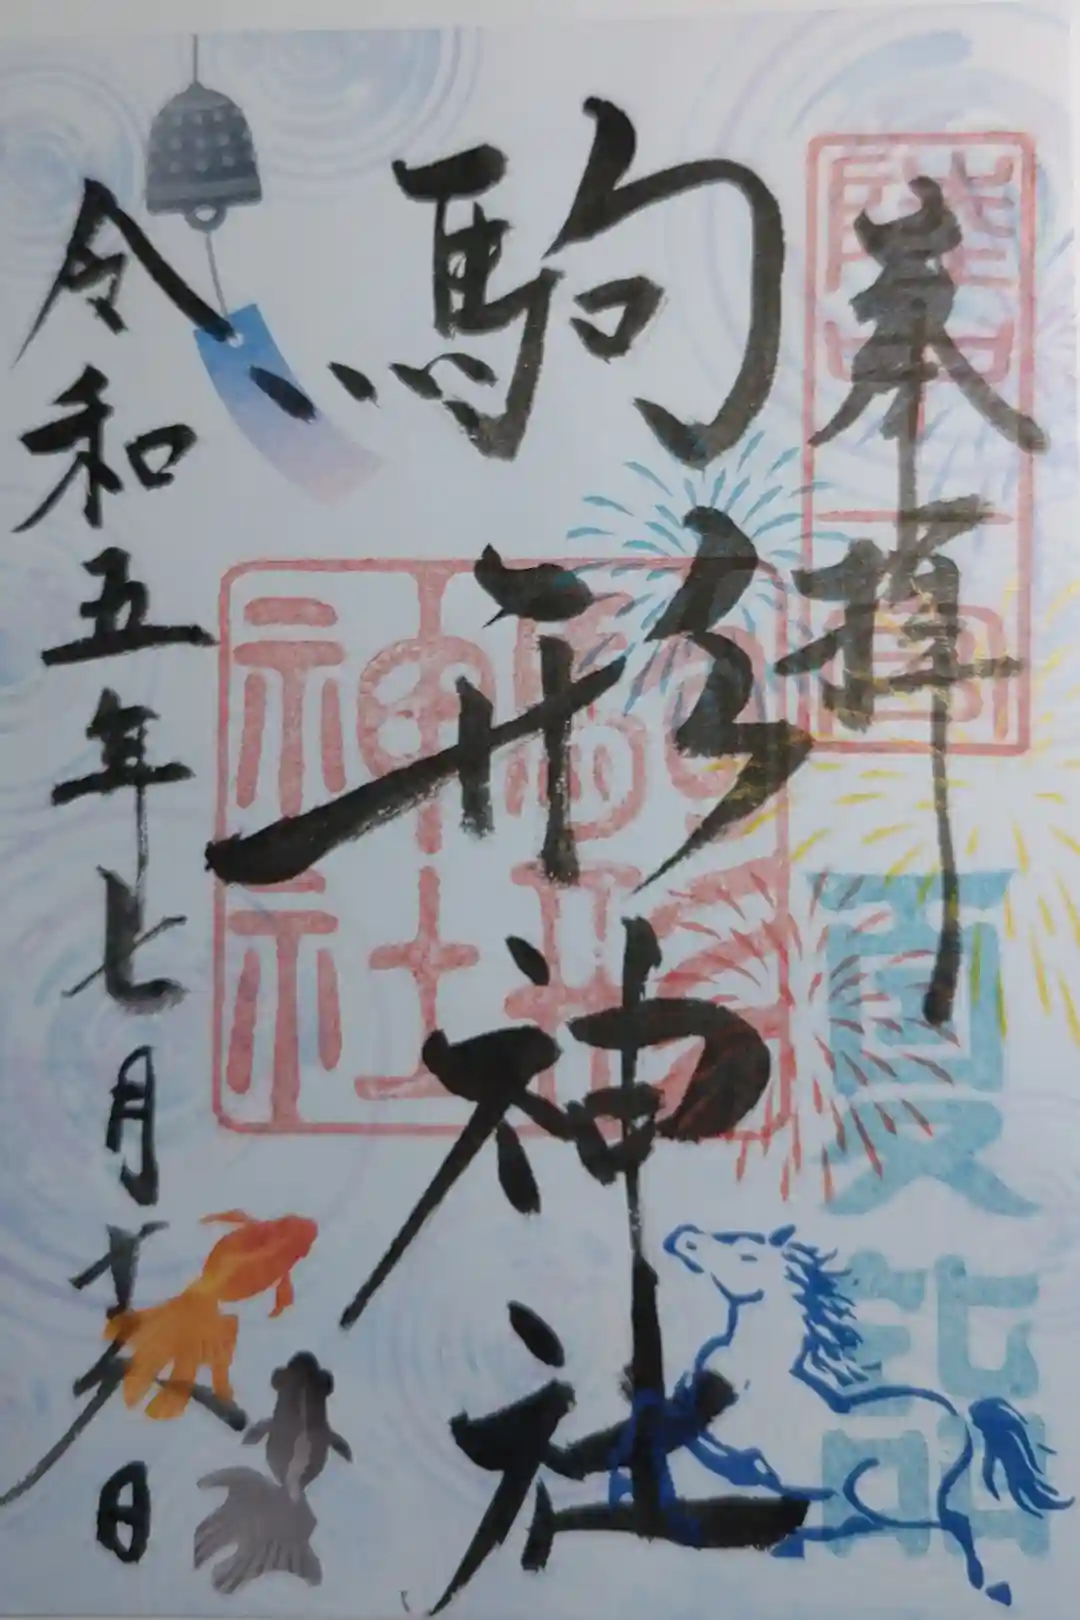 奉拝
陸中一宮
夏詣
駒形神社
駒形神社
令和五年七月
日